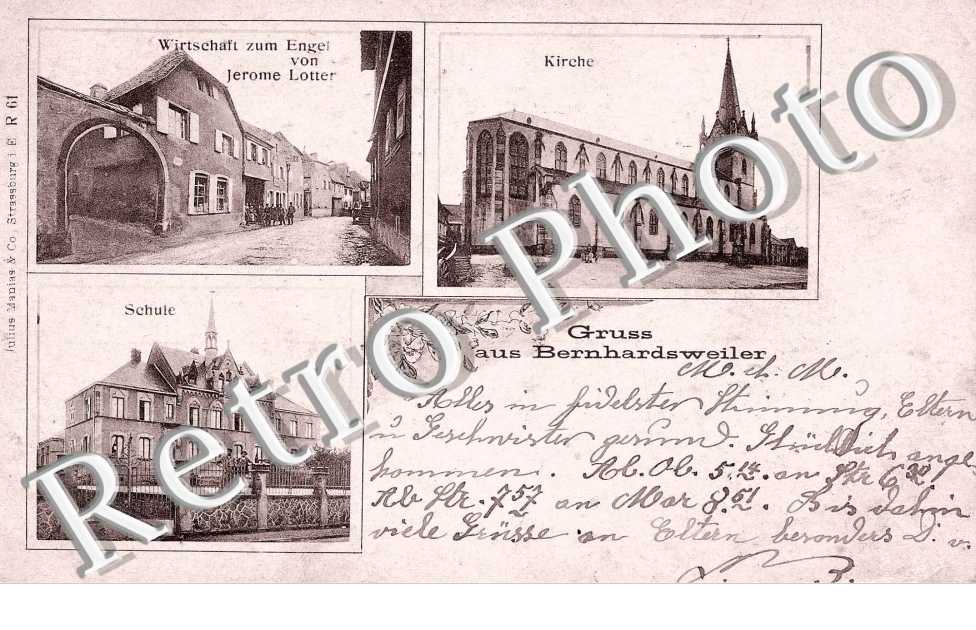 Wirtschaft zum Engel
von
Jerome Lotter
Kirche
Julius Manias & Co, Strassburg i E. R 61
Schule
Gruss
aus Bernhardsweiler
M. ch. M.
Alles in fidelster Stimmung, Eltern
u Geschwister gesund. Glücklich ange
kommen. Ab Ob. 5.14 an Str 6.20
Ab Str. 7 57 an Mar 8.51. Bis dahin
viele Grüsse an Eltern, besonders D. v.
Retro Photo